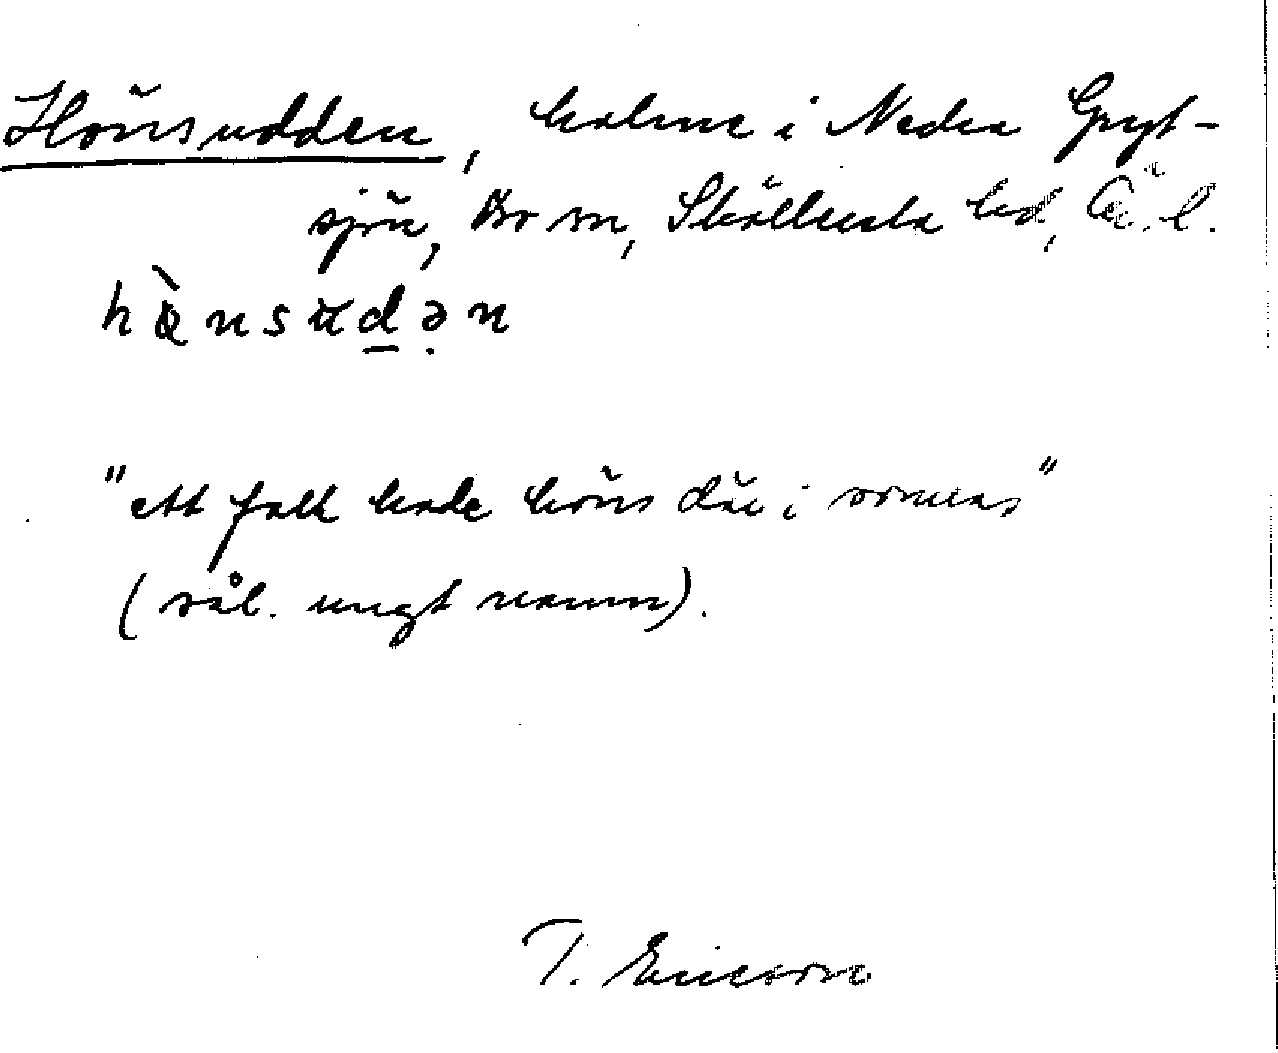 Hönsudden, holme i Nedra Gryt-
sjön, Bo sn, Sköllersta hd, Ö.l.
"ett folk hade höns där i somras"
(sål. ungt namn).
T. Ericsson